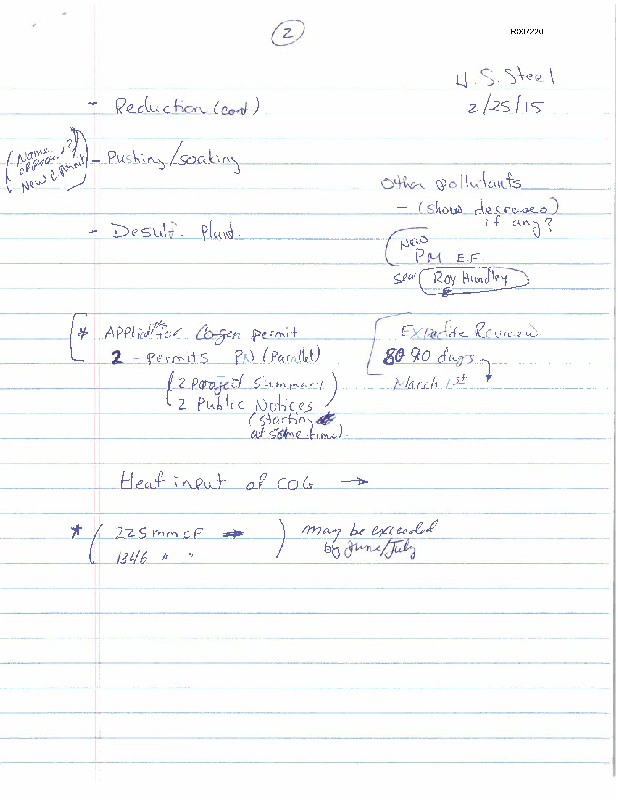 2
R007220
U.S. Steel
2/25/15
- Reduction (cont)
(Name
New E Permit)
- Pushing/soaking
Other pollutants
- (show decreases)
if any?
- Desulf. Plant.
New
PM E.F.
Roy Hundley
* Applied for Co-gen permit
2 - permits PN (Parallel)
(2 Project Summary)
2 Public Notices
(starting
at same time).
Expedite Review
90 days
March 1st
Heat input of COG →
* (225 mmcF →
1346 " "
) may be exceeded
by June/July